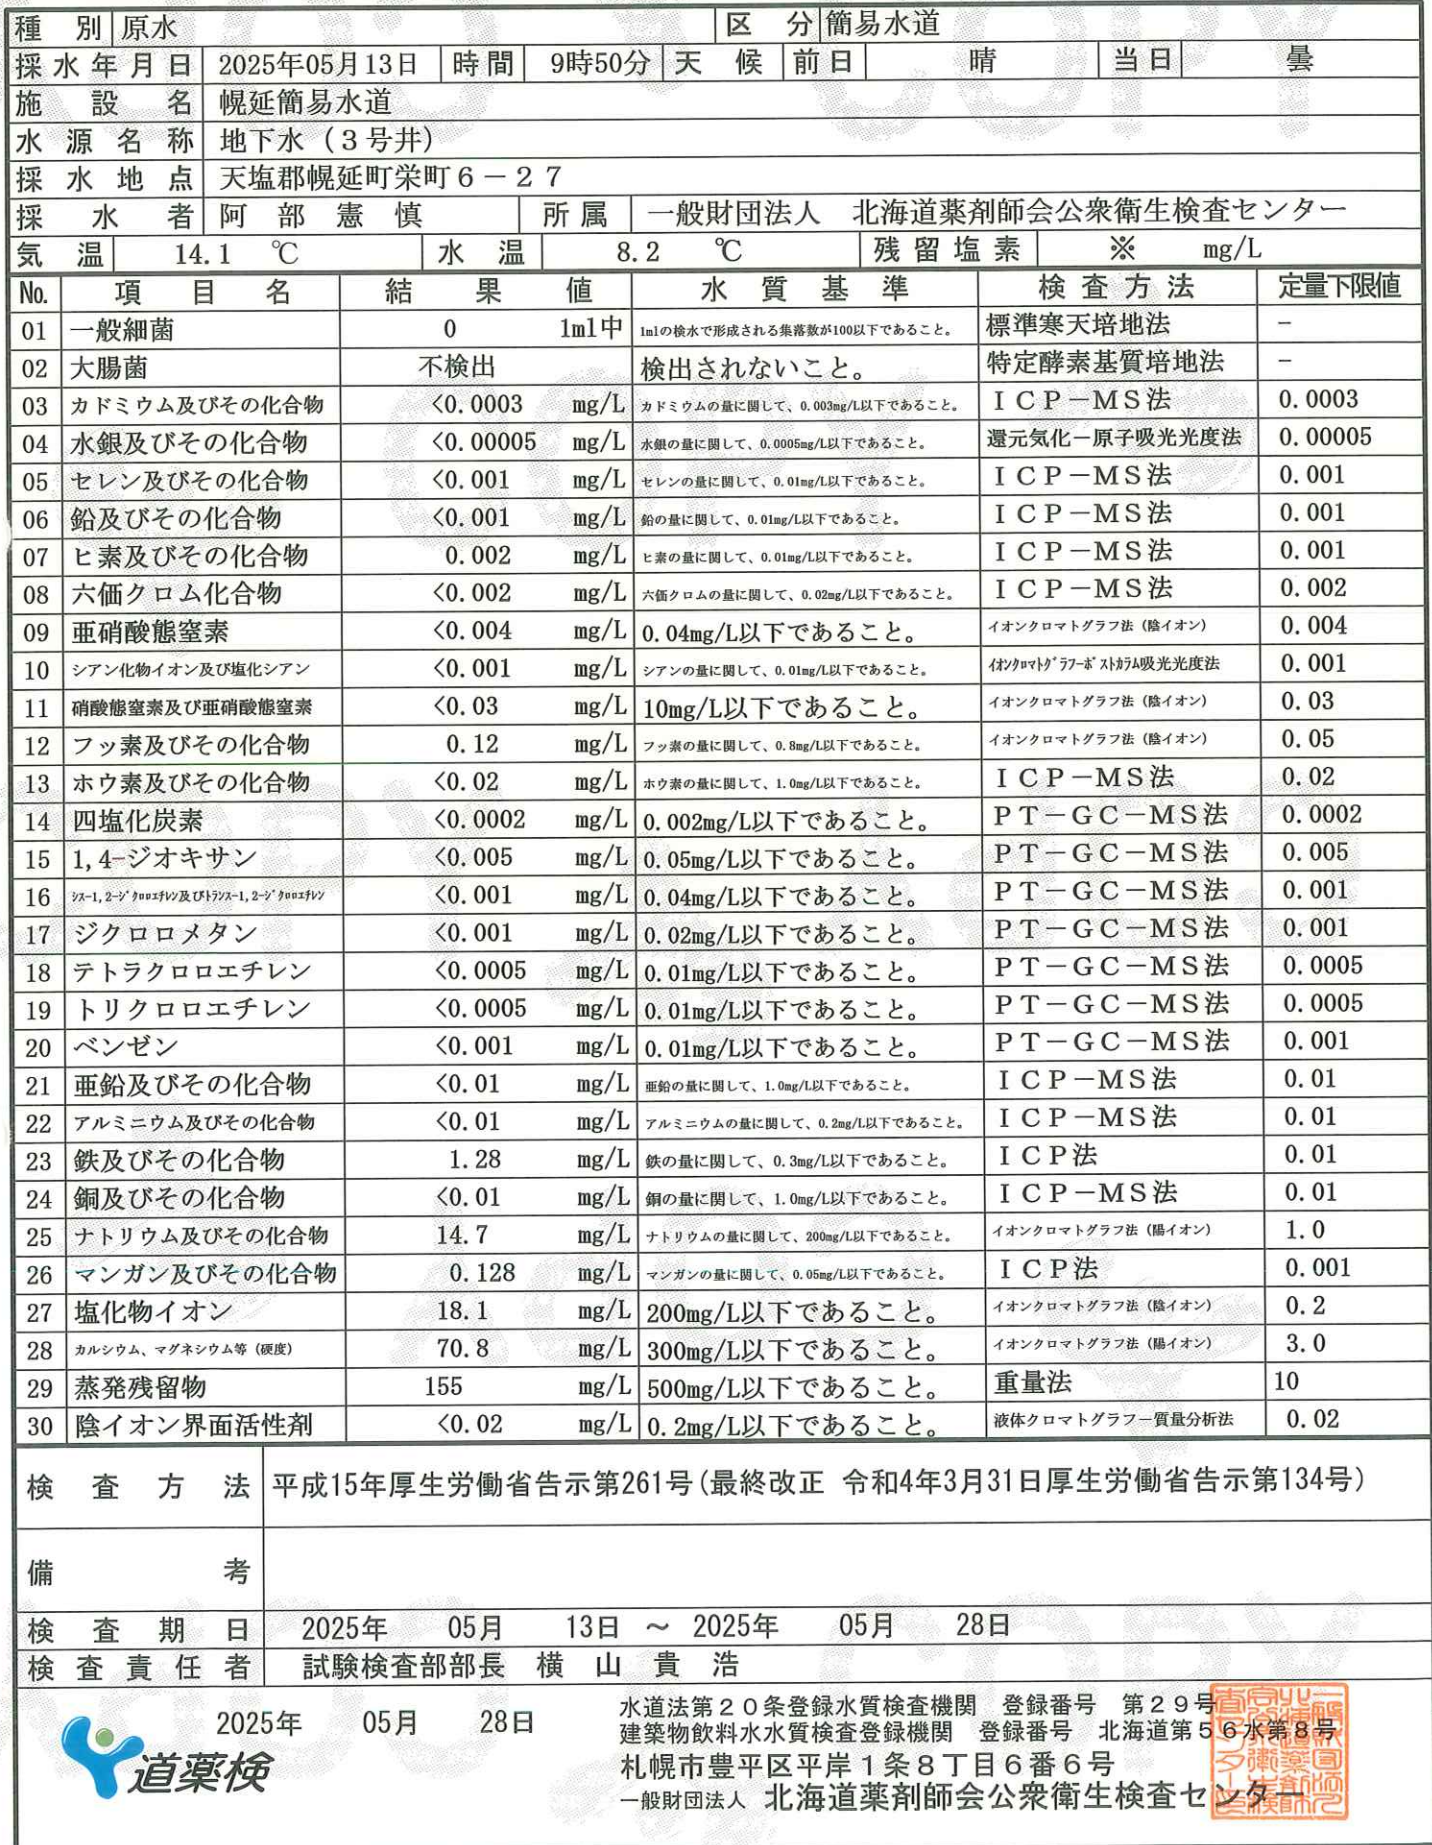 種別 原水 区分 簡易水道
採水年月日 2025年05月13日 時間 9時50分 天候 前日 晴 当日 曇
施設名 幌延簡易水道
水源名称 地下水（3号井）
採水地点 天塩郡幌延町栄町6－27
採水者 阿部憲慎 所属 一般財団法人 北海道薬剤師会公衆衛生検査センター
気温 14.1 ℃ 水温 8.2 ℃ 残留塩素 ※ mg/L
No. 項目名 結果値 水質基準 検査方法 定量下限値
01 一般細菌 0 1ml中 1mlの検水で形成される集落数が100以下であること。 標準寒天培地法 －
02 大腸菌 不検出 検出されないこと。 特定酵素基質培地法 －
03 カドミウム及びその化合物 <0.0003 mg/L カドミウムの量に関して、0.003mg/L以下であること。 ＩＣＰ－ＭＳ法 0.0003
04 水銀及びその化合物 <0.00005 mg/L 水銀の量に関して、0.0005mg/L以下であること。 還元気化－原子吸光光度法 0.00005
05 セレン及びその化合物 <0.001 mg/L セレンの量に関して、0.01mg/L以下であること。 ＩＣＰ－ＭＳ法 0.001
06 鉛及びその化合物 <0.001 mg/L 鉛の量に関して、0.01mg/L以下であること。 ＩＣＰ－ＭＳ法 0.001
07 ヒ素及びその化合物 0.002 mg/L ヒ素の量に関して、0.01mg/L以下であること。 ＩＣＰ－ＭＳ法 0.001
08 六価クロム化合物 <0.002 mg/L 六価クロムの量に関して、0.02mg/L以下であること。 ＩＣＰ－ＭＳ法 0.002
09 亜硝酸態窒素 <0.004 mg/L 0.04mg/L以下であること。 イオンクロマトグラフ法（陰イオン） 0.004
10 シアン化物イオン及び塩化シアン <0.001 mg/L シアンの量に関して、0.01mg/L以下であること。 ｲｵﾝｸﾛﾏﾄｸﾞﾗﾌｰﾎﾟｽﾄｶﾗﾑ吸光光度法 0.001
11 硝酸態窒素及び亜硝酸態窒素 <0.03 mg/L 10mg/L以下であること。 イオンクロマトグラフ法（陰イオン） 0.03
12 フッ素及びその化合物 0.12 mg/L フッ素の量に関して、0.8mg/L以下であること。 イオンクロマトグラフ法（陰イオン） 0.05
13 ホウ素及びその化合物 <0.02 mg/L ホウ素の量に関して、1.0mg/L以下であること。 ＩＣＰ－ＭＳ法 0.02
14 四塩化炭素 <0.0002 mg/L 0.002mg/L以下であること。 ＰＴ－ＧＣ－ＭＳ法 0.0002
15 1,4-ジオキサン <0.005 mg/L 0.05mg/L以下であること。 ＰＴ－ＧＣ－ＭＳ法 0.005
16 ｼｽ-1,2-ｼﾞｸﾛﾛｴﾁﾚﾝ及びﾄﾗﾝｽ-1,2-ｼﾞｸﾛﾛｴﾁﾚﾝ <0.001 mg/L 0.04mg/L以下であること。 ＰＴ－ＧＣ－ＭＳ法 0.001
17 ジクロロメタン <0.001 mg/L 0.02mg/L以下であること。 ＰＴ－ＧＣ－ＭＳ法 0.001
18 テトラクロロエチレン <0.0005 mg/L 0.01mg/L以下であること。 ＰＴ－ＧＣ－ＭＳ法 0.0005
19 トリクロロエチレン <0.0005 mg/L 0.01mg/L以下であること。 ＰＴ－ＧＣ－ＭＳ法 0.0005
20 ベンゼン <0.001 mg/L 0.01mg/L以下であること。 ＰＴ－ＧＣ－ＭＳ法 0.001
21 亜鉛及びその化合物 <0.01 mg/L 亜鉛の量に関して、1.0mg/L以下であること。 ＩＣＰ－ＭＳ法 0.01
22 アルミニウム及びその化合物 <0.01 mg/L アルミニウムの量に関して、0.2mg/L以下であること。 ＩＣＰ－ＭＳ法 0.01
23 鉄及びその化合物 1.28 mg/L 鉄の量に関して、0.3mg/L以下であること。 ＩＣＰ法 0.01
24 銅及びその化合物 <0.01 mg/L 銅の量に関して、1.0mg/L以下であること。 ＩＣＰ－ＭＳ法 0.01
25 ナトリウム及びその化合物 14.7 mg/L ナトリウムの量に関して、200mg/L以下であること。 イオンクロマトグラフ法（陽イオン） 1.0
26 マンガン及びその化合物 0.128 mg/L マンガンの量に関して、0.05mg/L以下であること。 ＩＣＰ法 0.001
27 塩化物イオン 18.1 mg/L 200mg/L以下であること。 イオンクロマトグラフ法（陰イオン） 0.2
28 カルシウム、マグネシウム等（硬度） 70.8 mg/L 300mg/L以下であること。 イオンクロマトグラフ法（陽イオン） 3.0
29 蒸発残留物 155 mg/L 500mg/L以下であること。 重量法 10
30 陰イオン界面活性剤 <0.02 mg/L 0.2mg/L以下であること。 液体クロマトグラフ－質量分析法 0.02
検査方法 平成15年厚生労働省告示第261号(最終改正 令和4年3月31日厚生労働省告示第134号)
備考
検査期日 2025年 05月 13日 ～ 2025年 05月 28日
検査責任者 試験検査部部長 横山貴浩
2025年 05月 28日
道薬検
水道法第２０条登録水質検査機関 登録番号 第２９号
建築物飲料水水質検査登録機関 登録番号 北海道第５６水第８号
札幌市豊平区平岸１条８丁目６番６号
一般財団法人 北海道薬剤師会公衆衛生検査センター